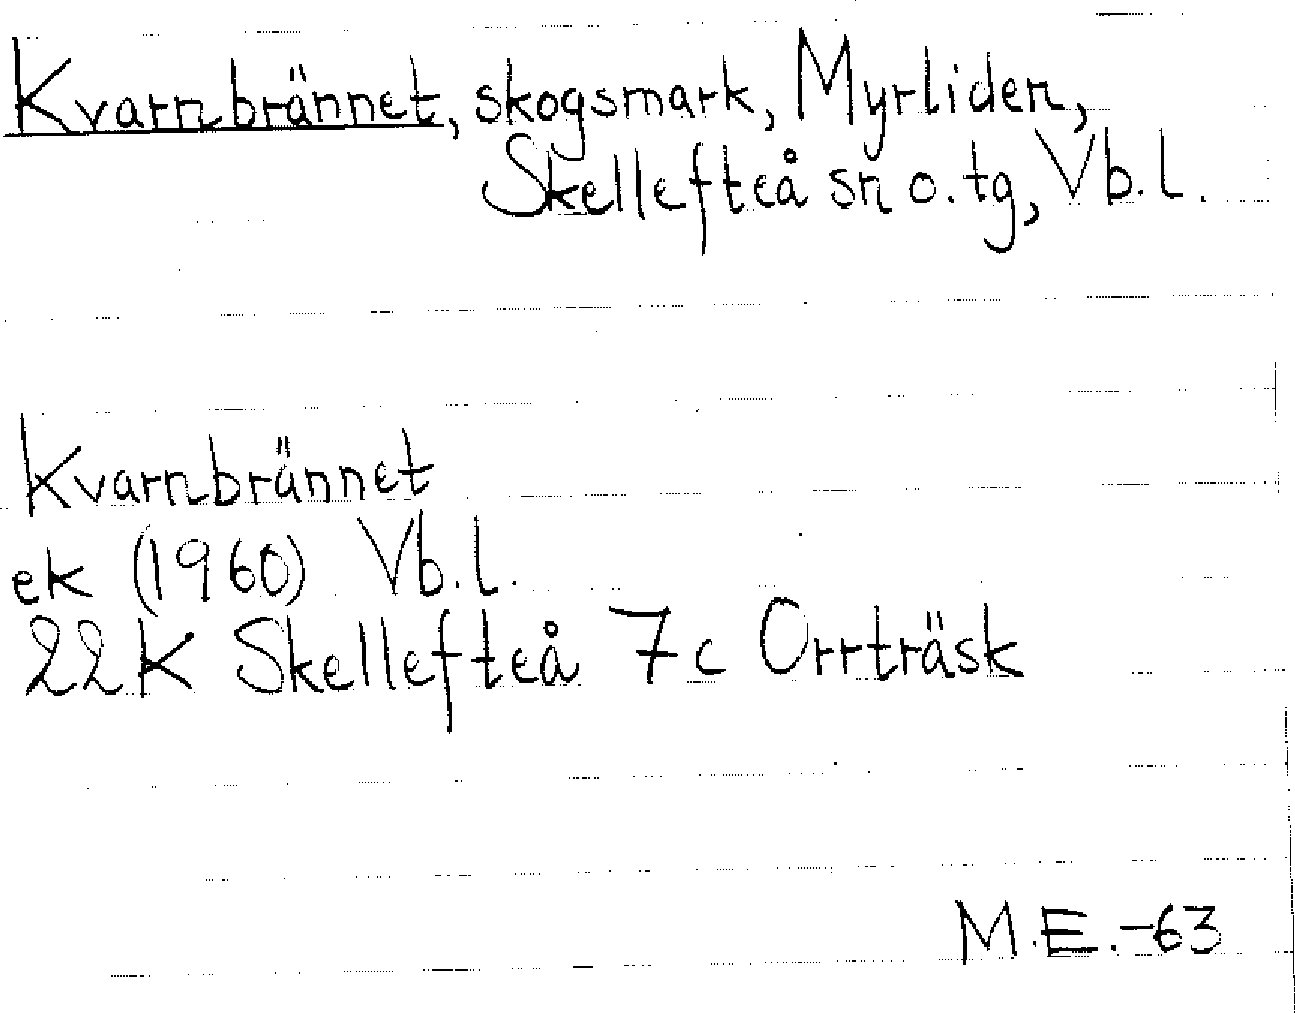 Kvarnbrännet, skogsmark, Myrliden,
Skellefteå sn o. tg, Vb. l.
Kvarnbrännet
ek (1960) Vb. l.
22K Skellefteå 7c Orrträsk
M.E.-63